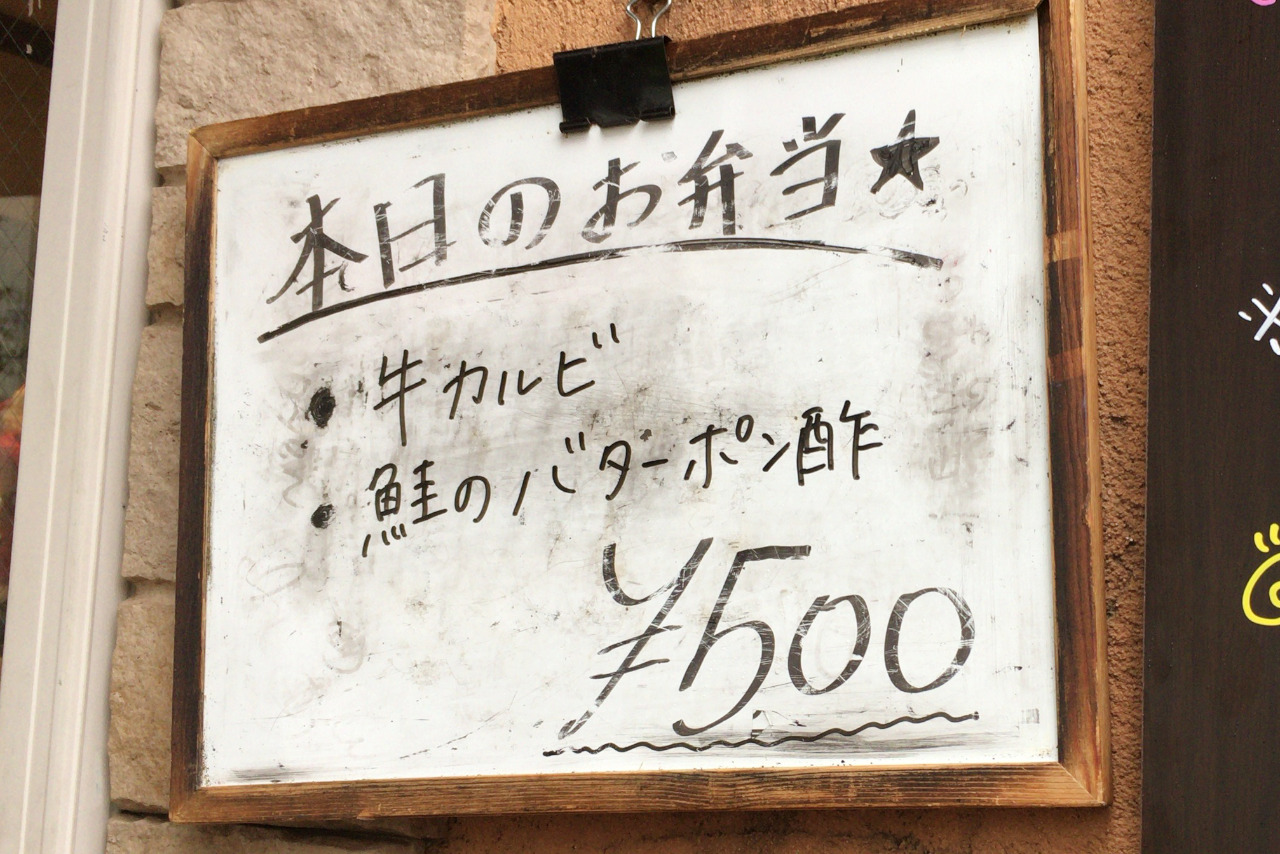 本日のお弁当★
・牛カルビ
・鮭のバターポン酢
¥500
※